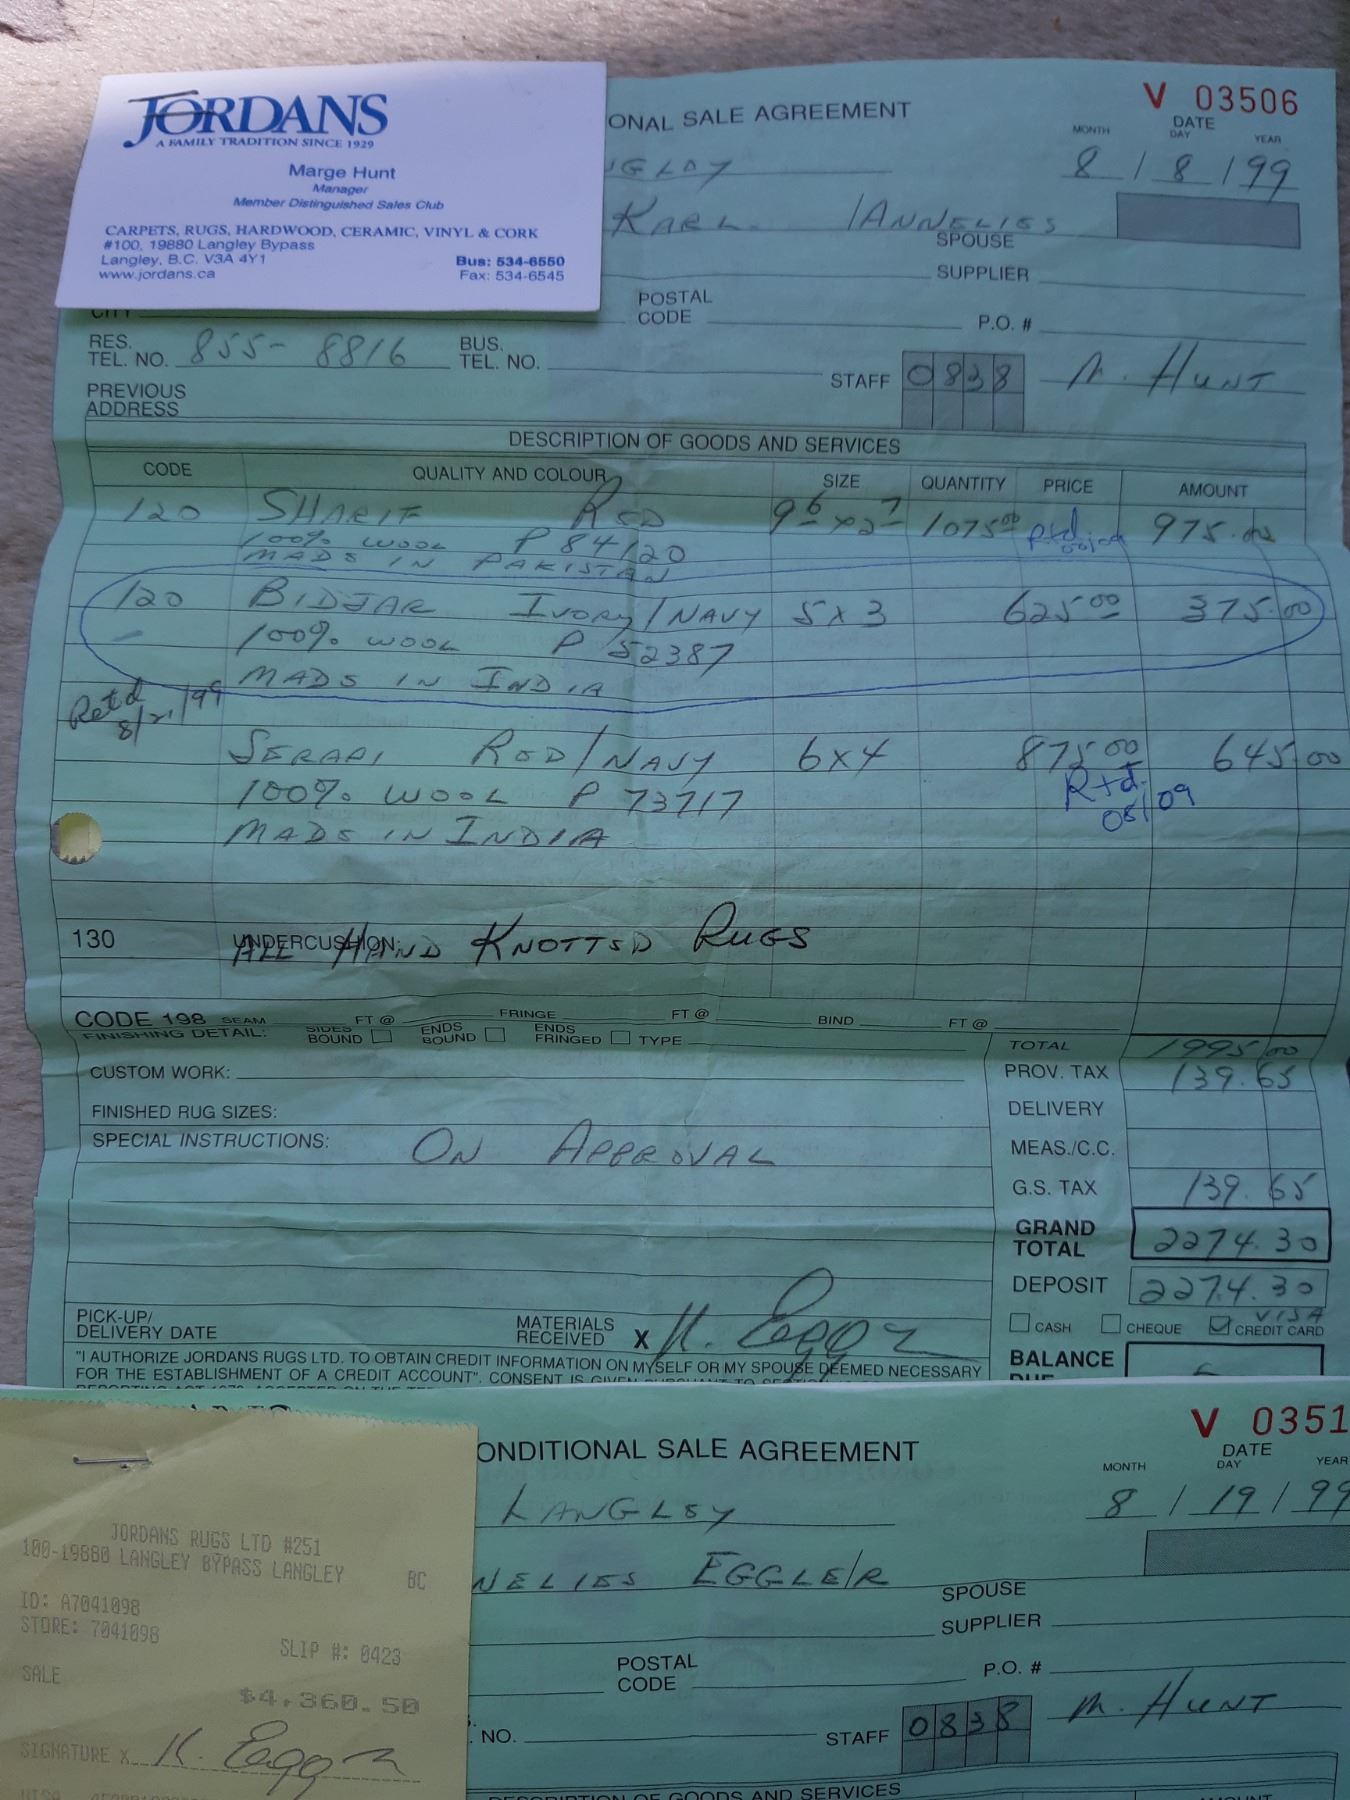 JORDANS
A FAMILY TRADITION SINCE 1929
Marge Hunt
Manager
Member Distinguished Sales Club
CARPETS, RUGS, HARDWOOD, CERAMIC, VINYL & CORK
#100, 19880 Langley Bypass
Langley, B.C. V3A 4Y1 Bus: 534-6550
www.jordans.ca Fax: 534-6545
ONAL SALE AGREEMENT V 03506
MONTH DATE DAY YEAR
GLEY 8 / 8 / 99
KARL / ANNELIES
SPOUSE
SUPPLIER
CITY POSTAL CODE P.O. #
RES. TEL. NO. 855-8816 BUS. TEL. NO.
STAFF 0838 M. HUNT
PREVIOUS ADDRESS
DESCRIPTION OF GOODS AND SERVICES
CODE QUALITY AND COLOUR SIZE QUANTITY PRICE AMOUNT
120 SHARIF RED 9 6 x 2 7 1075 00 Rtd 975.00
100% WOOL P 84120
MADE IN PAKISTAN
120 BIDJAR IVORY/NAVY 5 x 3 625 00 375.00
100% WOOL P 52387
MADE IN INDIA
Ret'd 8/21/99
SERAPI RED/NAVY 6 x 4 875 00 645.00
100% WOOL P 73717 Rtd. 08/09
MADE IN INDIA
130 UNDERCUSHION:
ALL HAND KNOTTED RUGS
CODE 198 SEAM FT @ FRINGE FT @ BIND FT @
FINISHING DETAIL: SIDES BOUND ENDS BOUND ENDS FRINGED TYPE
TOTAL 1995.00
CUSTOM WORK: PROV. TAX 139.65
FINISHED RUG SIZES: DELIVERY
SPECIAL INSTRUCTIONS: ON APPROVAL MEAS./C.C.
G.S. TAX 139.65
GRAND TOTAL 2274.30
DEPOSIT 2274.30
VISA
PICK-UP/ DELIVERY DATE MATERIALS RECEIVED X K. Eggler CASH CHEQUE CREDIT CARD
"I AUTHORIZE JORDANS RUGS LTD. TO OBTAIN CREDIT INFORMATION ON MYSELF OR MY SPOUSE DEEMED NECESSARY BALANCE DUE
FOR THE ESTABLISHMENT OF A CREDIT ACCOUNT". CONSENT IS GIVEN
ONDITIONAL SALE AGREEMENT V 0351
MONTH DATE DAY YEAR
LANGLEY 8 / 19 / 99
NELIES EGGLER
SPOUSE
SUPPLIER
POSTAL CODE P.O. #
NO. STAFF 0838 M. HUNT
DESCRIPTION OF GOODS AND SERVICES
AMOUNT
JORDANS RUGS LTD #251
100-19880 LANGLEY BYPASS LANGLEY BC
ID: A7041098
STORE: 7041098
SLIP #: 0423
SALE
$4,360.50
SIGNATURE X K. Eggler
VISA